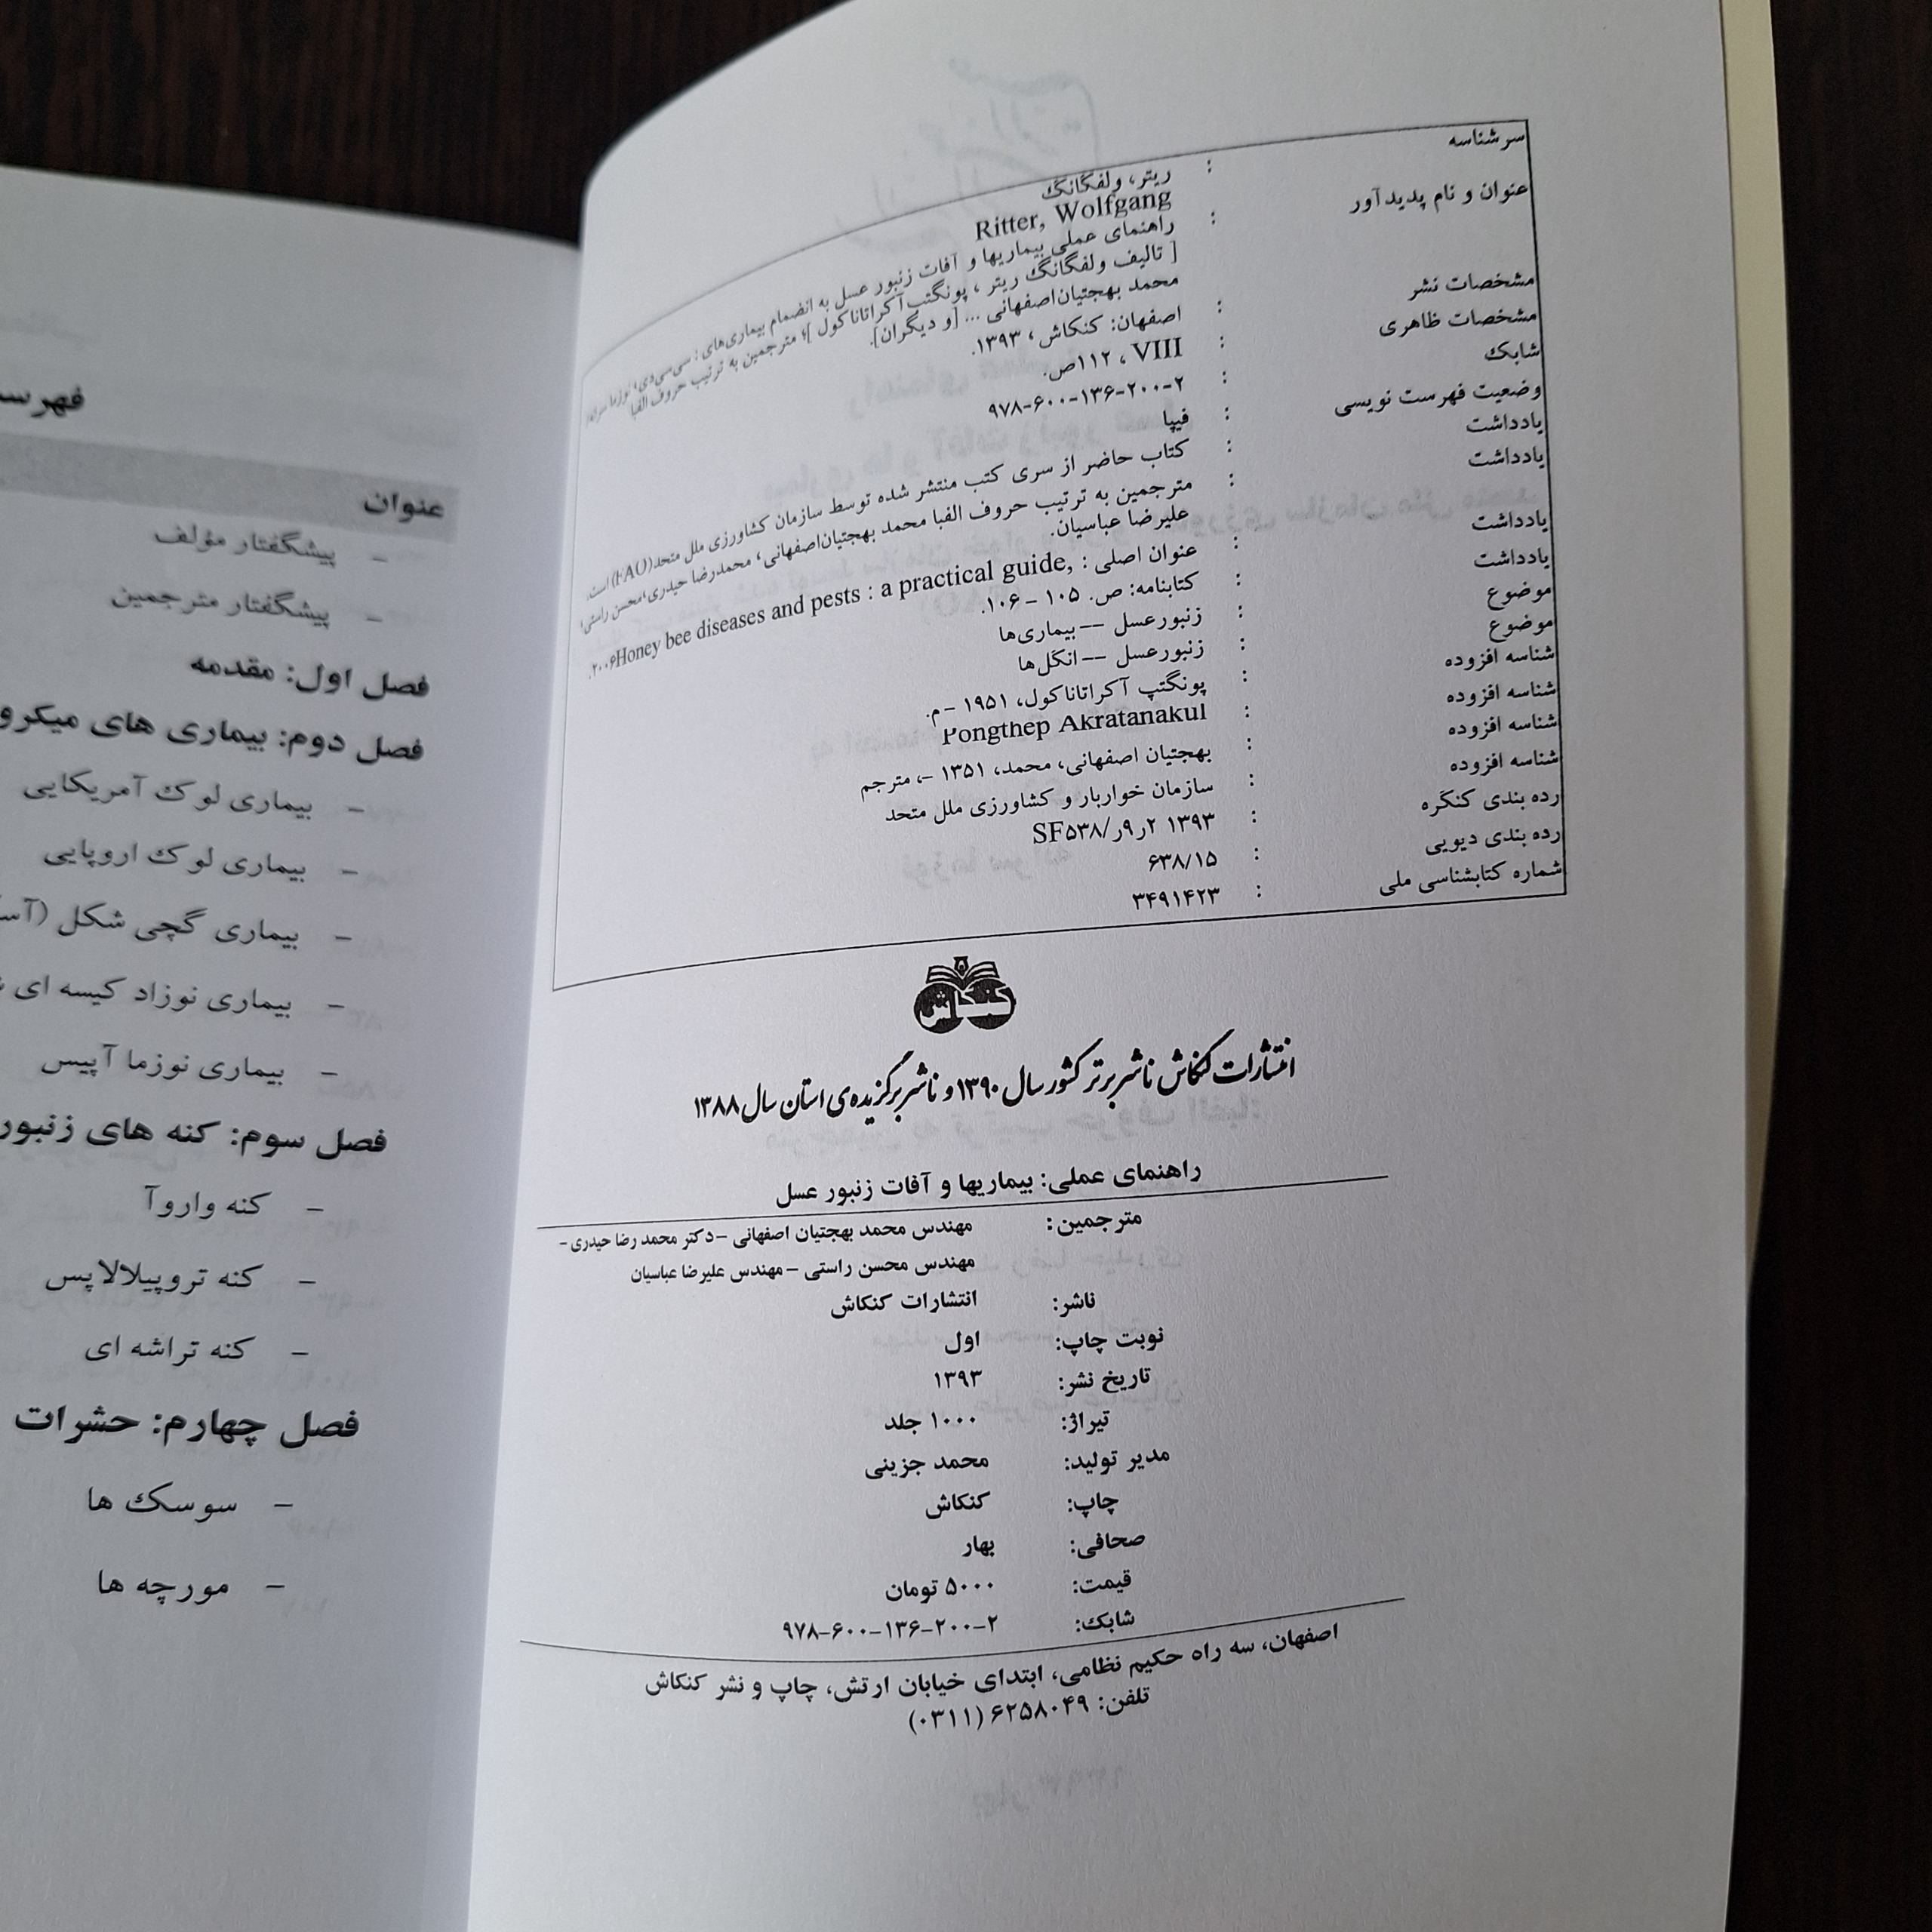 سرشناسه : ریتر، ولفگانگ
Ritter, Wolfgang
عنوان و نام پدیدآور : راهنمای عملی بیماریها و آفات زنبور عسل به انضمام بیماری‌های : سی‌سی‌دی، نوزما سرانه/
[ تالیف ولفگانگ ریتر ، پونگتپ آکراتاناکول ]؛ مترجمین به ترتیب حروف الفبا
محمد بهجتیان‌اصفهانی ... [و دیگران].
مشخصات نشر : اصفهان: کنکاش ، ۱۳۹۳.
مشخصات ظاهری : VIII ، ۱۱۲ص.
شابک : ۹۷۸-۶۰۰-۱۳۶-۲۰۰-۲
وضعیت فهرست نویسی : فیپا
یادداشت : کتاب حاضر از سری کتب منتشر شده توسط سازمان کشاورزی ملل متحد(FAO) است.
یادداشت : مترجمین به ترتیب حروف الفبا محمد بهجتیان‌اصفهانی، محمدرضا حیدری،محسن راستی،
علیرضا عباسیان.
یادداشت : عنوان اصلی : Honey bee diseases and pests : a practical guide, ۲۰۰۶.
یادداشت : کتابنامه: ص. ۱۰۵ - ۱۰۶.
موضوع : زنبورعسل -- بیماری‌ها
موضوع : زنبورعسل -- انگل‌ها
شناسه افزوده : پونگتپ آکراتاناکول، ۱۹۵۱ - م.
شناسه افزوده : Pongthep Akratanakul
شناسه افزوده : بهجتیان اصفهانی، محمد، ۱۳۵۱ -، مترجم
شناسه افزوده : سازمان خواربار و کشاورزی ملل متحد
رده بندی کنگره : ۱۳۹۳ ۲ر۹ر/SF۵۳۸
رده بندی دیویی : ۶۳۸/۱۵
شماره کتابشناسی ملی : ۳۴۹۱۴۲۳
کنکاش
انتشارات کنکاش ناشر برتر کشور سال ۱۳۹۰ و ناشر برگزیده‌ی استان سال ۱۳۸۸
راهنمای عملی: بیماریها و آفات زنبور عسل
مترجمین: مهندس محمد بهجتیان اصفهانی -دکتر محمد رضا حیدری-
مهندس محسن راستی -مهندس علیرضا عباسیان
ناشر: انتشارات کنکاش
نوبت چاپ: اول
تاریخ نشر: ۱۳۹۳
تیراژ: ۱۰۰۰ جلد
مدیر تولید: محمد جزینی
چاپ: کنکاش
صحافی: بهار
قیمت: ۵۰۰۰ تومان
شابک: ۹۷۸-۶۰۰-۱۳۶-۲۰۰-۲
اصفهان، سه راه حکیم نظامی، ابتدای خیابان ارتش، چاپ و نشر کنکاش
تلفن: ۶۲۵۸۰۴۹ (۰۳۱۱)
عنوان
- پیشگفتار مؤلف
- پیشگفتار مترجمین
فصل اول: مقدمه
فصل دوم: بیماری های
- بیماری لوک آمریکایی
- بیماری لوک اروپایی
- بیماری گچی شکل
- بیماری نوزاد کیسه ای
- بیماری نوزما آپیس
فصل سوم: کنه های زنبور
- کنه واروآ
- کنه تروپیلالاپس
- کنه تراشه ای
فصل چهارم: حشرات
- سوسک ها
- مورچه ها